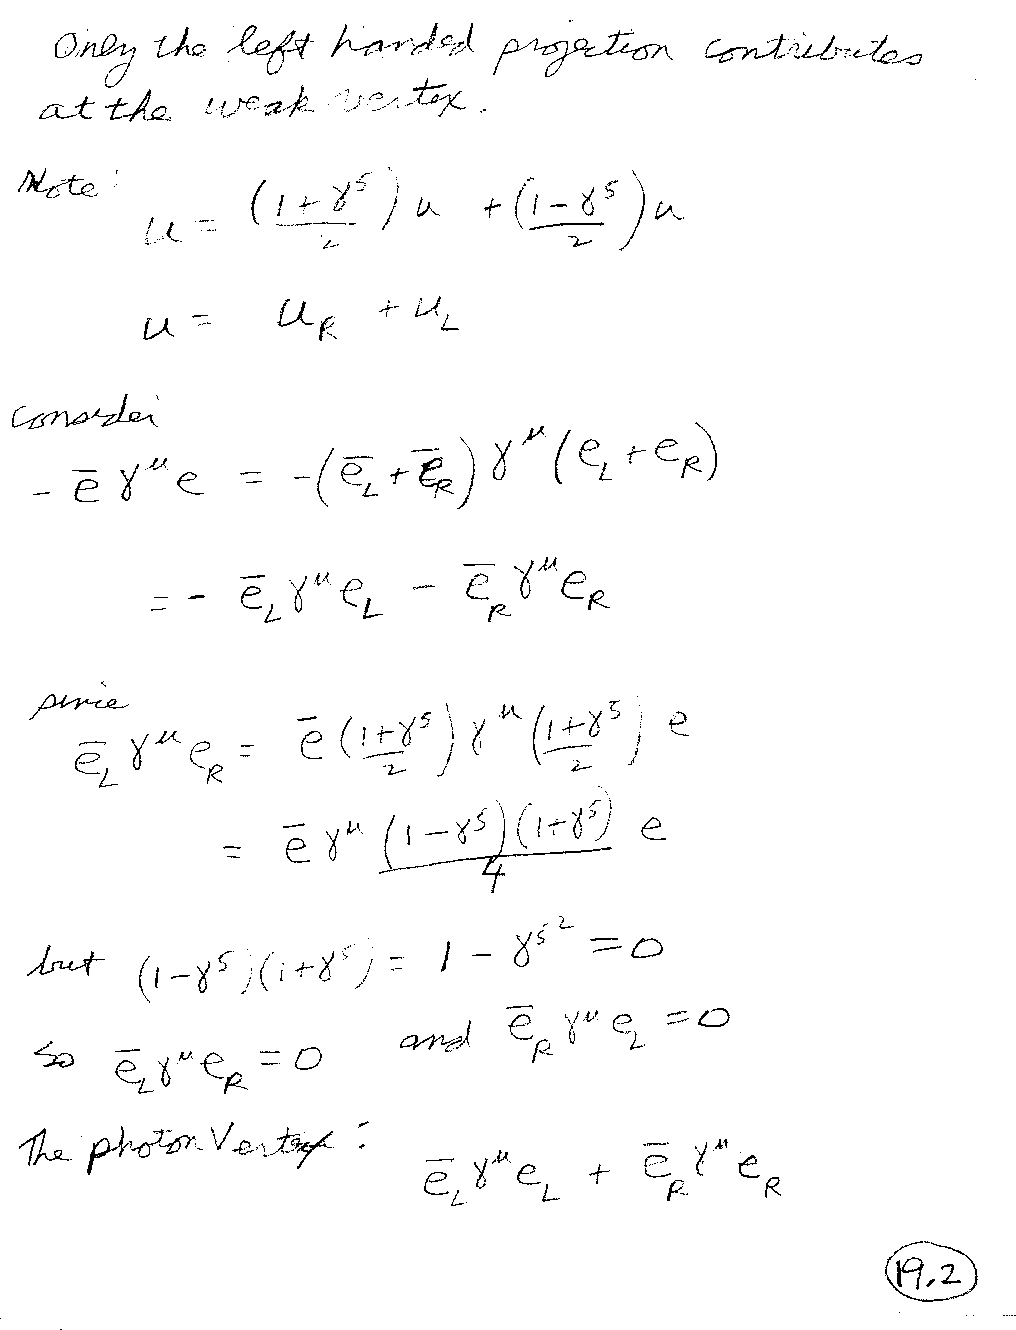 Only the left handed projection contributes
at the weak vertex.
Note:
u = ((1+γ⁵)/2) u + ((1-γ⁵)/2) u
u = u_R + u_L
consider
- ē γ^μ e = -(ē_L + ē_R) γ^μ (e_L + e_R)
= - ē_L γ^μ e_L - ē_R γ^μ e_R
since
ē_L γ^μ e_R = ē ((1+γ⁵)/2) γ^μ ((1+γ⁵)/2) e
= ē γ^μ (1-γ⁵)(1+γ⁵)/4 e
but (1-γ⁵)(1+γ⁵) = 1 - γ⁵² = 0
so ē_L γ^μ e_R = 0 and ē_R γ^μ e_L = 0
The photon Vertex:
ē_L γ^μ e_L + ē_R γ^μ e_R
19.2